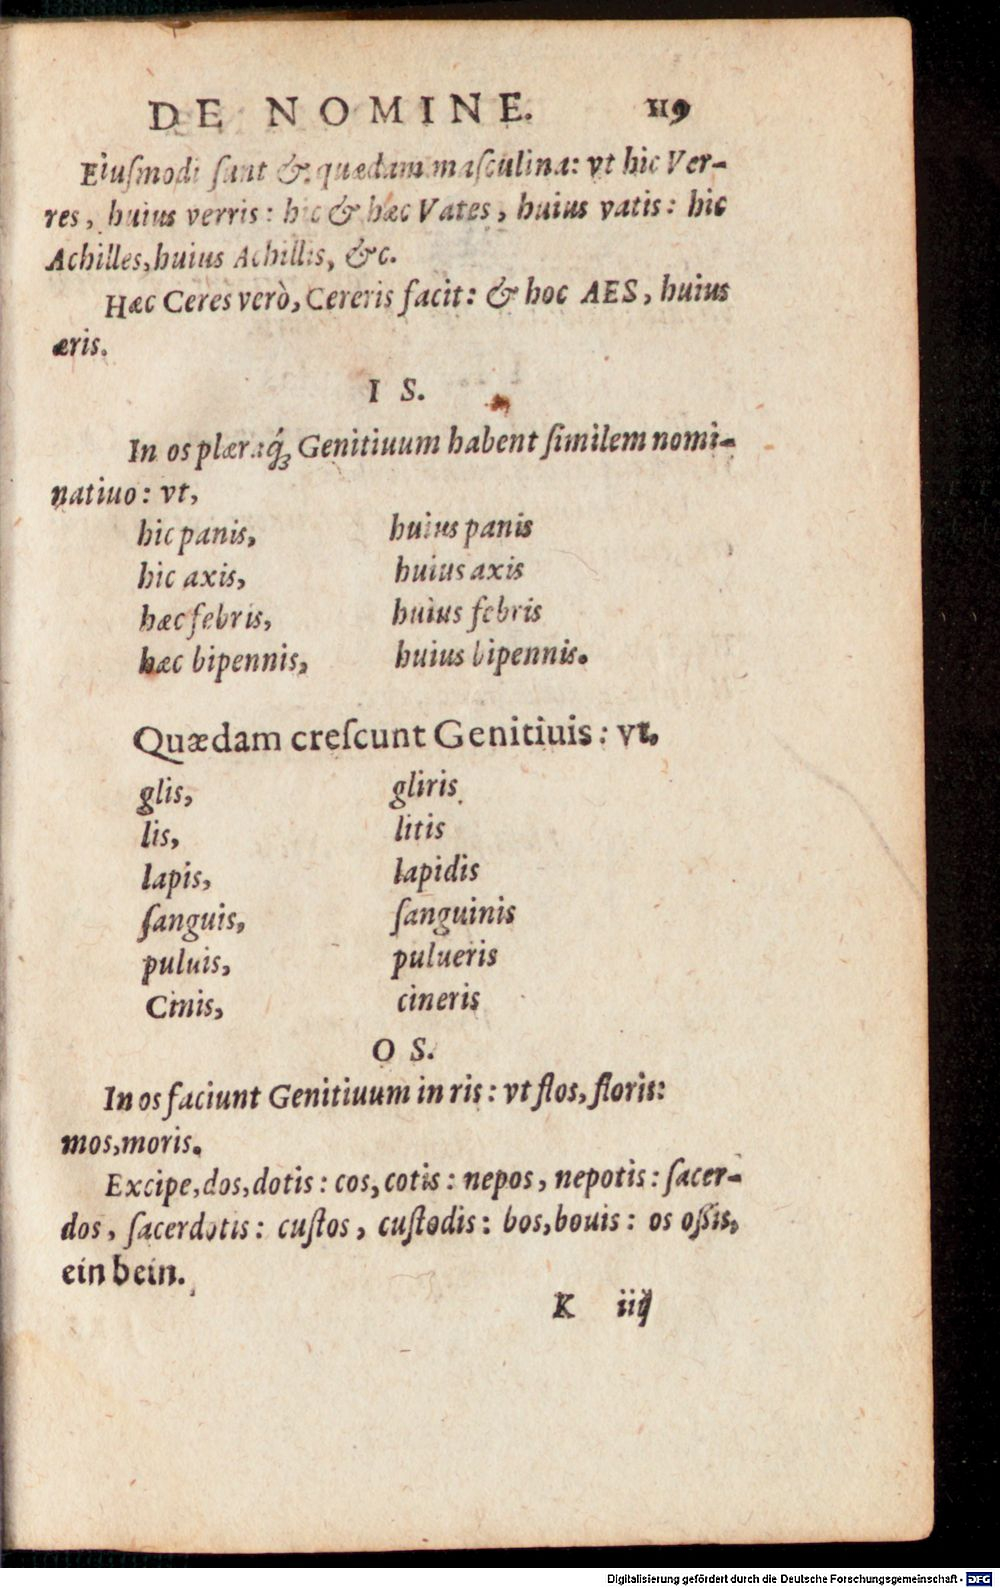 DE NOMINE. 119
Eiuſmodi ſunt & quædam maſculina: vt hic Ver-
res, huius verris: hic & hæc Vates, huius vatis: hic
Achilles, huius Achillis, &c.
Hæc Ceres verò, Cereris facit: & hoc AES, huius
æris.
I S.
In os plæraq́ꝫ Genitiuum habent ſimilem nomi-
natiuo: vt,
hic panis, huius panis
hic axis, huius axis
hæc febris, huius febris
hæc bipennis, huius bipennis.
Quædam creſcunt Genitiuis: vt,
glis, gliris
lis, litis
lapis, lapidis
ſanguis, ſanguinis
puluis, pulueris
Cinis, cineris
O S.
In os faciunt Genitiuum in ris: vt flos, floris:
mos, moris.
Excipe, dos, dotis: cos, cotis: nepos, nepotis: ſacer-
dos, ſacerdotis: cuſtos, cuſtodis: bos, bouis: os oſſis,
ein bein.
K iiij
Digitalisierung gefördert durch die Deutsche Forschungsgemeinschaft - DFG